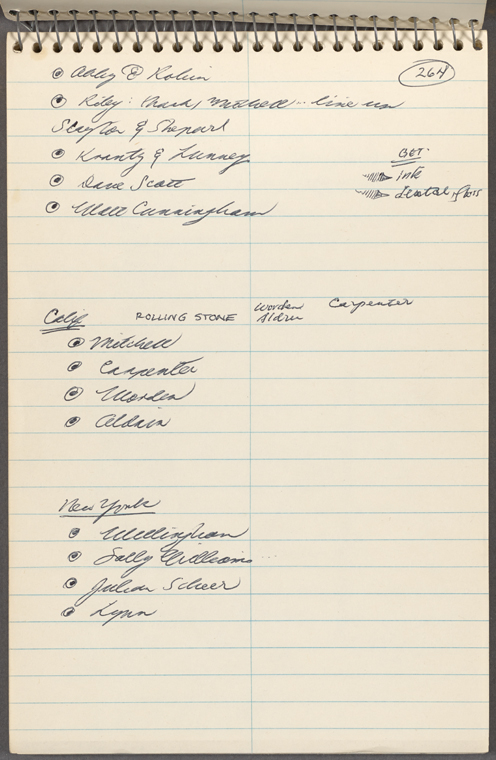 264
Abby & Robin
Riley: Mitchell -- line up
Slayton & Shepard
Krantz & Lunney
Dave Scott
Walt Cunningham
GET:
ink
dental floss
Calif
ROLLING STONE
Worden
Aldrin
Carpenter
Mitchell
Carpenter
Worden
Aldrin
New York
Willingham
Sally Williams
Julian Scheer
Lynn